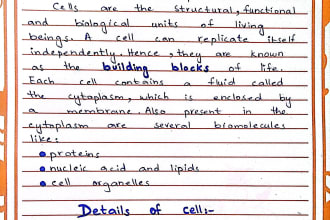 Cells are the structural, functional
and biological units of living
beings. A cell can replicate itself
independently. Hence, they are known
as the building blocks of life.
Each cell contains a fluid called
the cytoplasm, which is enclosed by
a membrane. Also present in the
cytoplasm are several biomolecules
like:
• proteins
• nucleic acid and lipids
• cell organelles
Details of cell:-